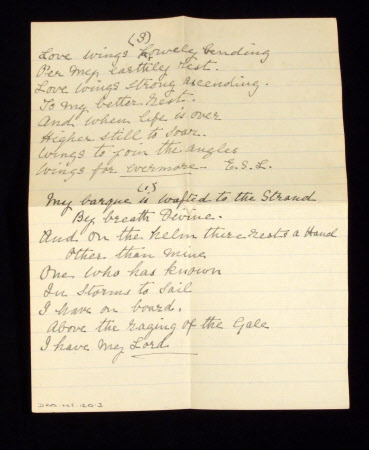 (3)
Love wings Lowely bending
O'er my earthly rest.
Love wings strong ascending.
To my better Rest.
And when life is over
Higher still to soar.
Wings to join the angles
Wings for evermore E. S. L.
(1)
My barque is wafted to the Strand
By breath Divine.
And on the helm there Rests a Hand
Other than mine
One who has known
In Storms to Sail
I have on board.
Above the Raging of the Gale
I have my Lord